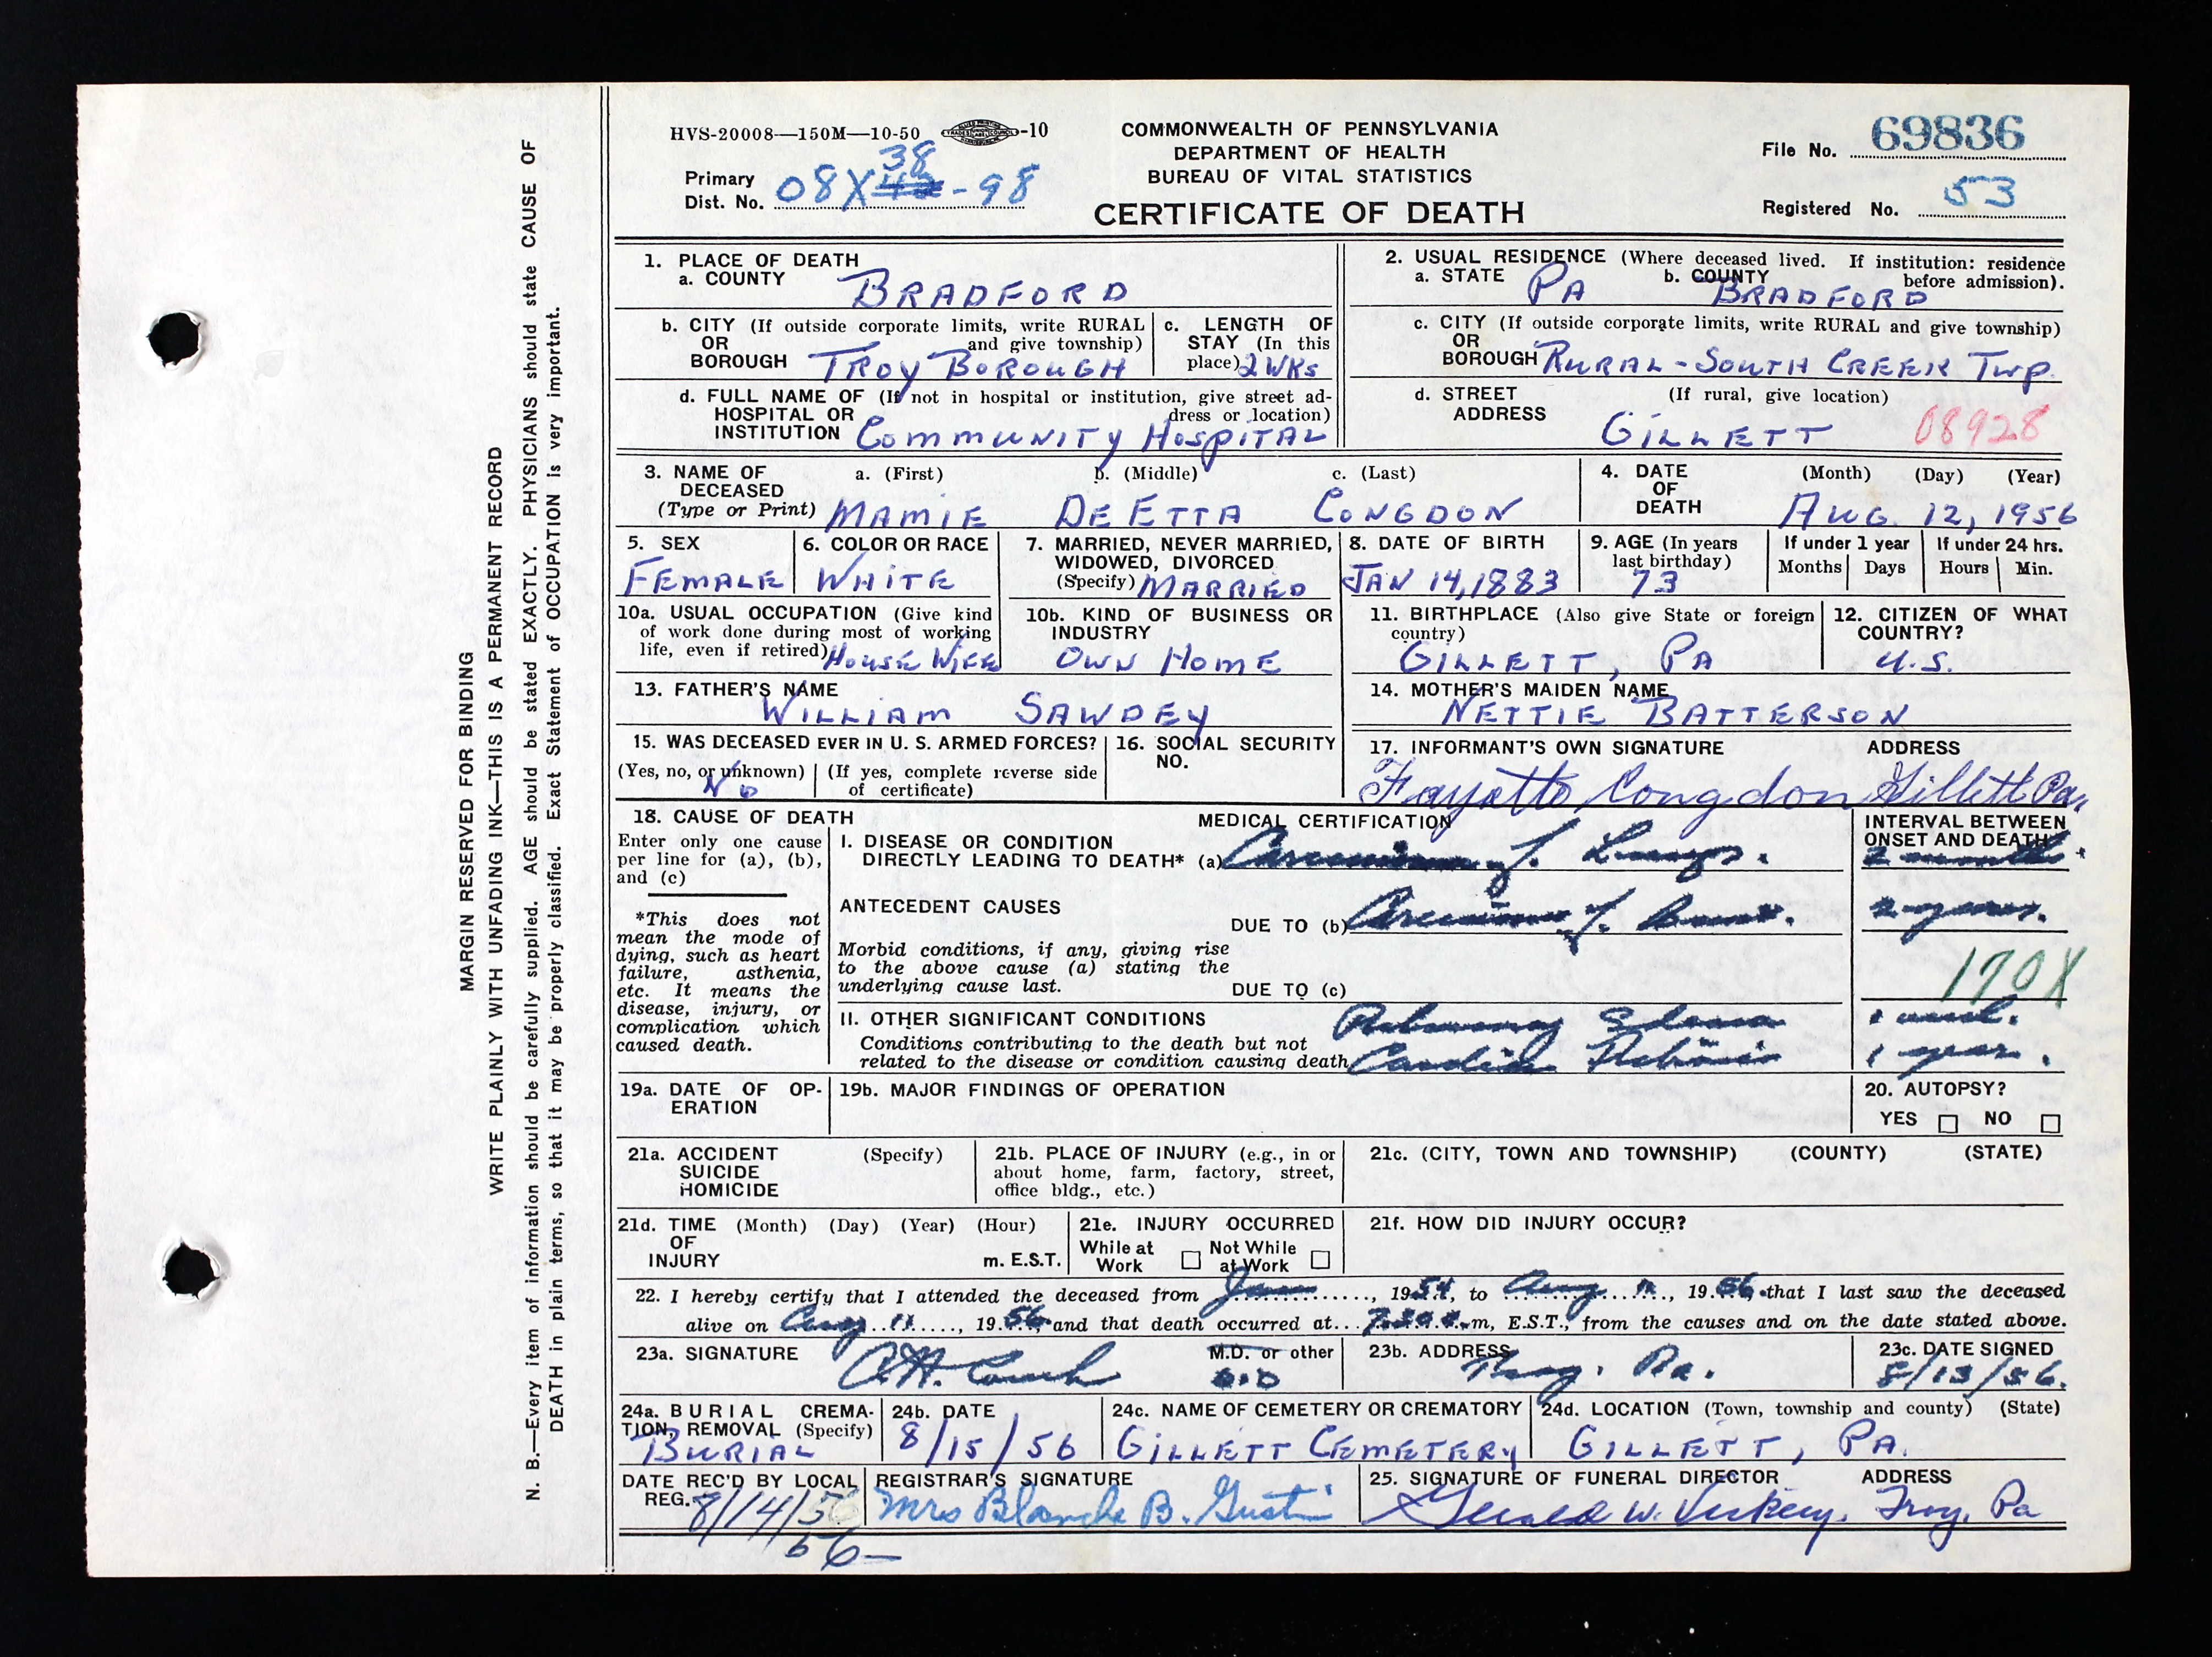 HVS-20008—150M—10-50 -10
COMMONWEALTH OF PENNSYLVANIA
DEPARTMENT OF HEALTH
BUREAU OF VITAL STATISTICS
CERTIFICATE OF DEATH
File No. 69836
Primary
Dist. No. 08X 38 -98
Registered No. 53
MARGIN RESERVED FOR BINDING
WRITE PLAINLY WITH UNFADING INK—THIS IS A PERMANENT RECORD
N. B.—Every item of information should be carefully supplied. AGE should be stated EXACTLY. PHYSICIANS should state CAUSE OF
DEATH in plain terms, so that it may be properly classified. Exact Statement of OCCUPATION is very important.
1. PLACE OF DEATH
a. COUNTY BRADFORD
b. CITY (If outside corporate limits, write RURAL
OR and give township)
BOROUGH TROY BOROUGH
c. LENGTH OF
STAY (In this
place) 2 WKS
d. FULL NAME OF (If not in hospital or institution, give street ad-
HOSPITAL OR dress or location)
INSTITUTION COMMUNITY HOSPITAL
2. USUAL RESIDENCE (Where deceased lived. If institution: residence
a. STATE PA b. COUNTY BRADFORD before admission).
c. CITY (If outside corporate limits, write RURAL and give township)
OR
BOROUGH RURAL-SOUTH CREEK TWP.
d. STREET (If rural, give location)
ADDRESS GILLETT 08928
3. NAME OF a. (First) b. (Middle) c. (Last)
DECEASED
(Type or Print) MAMIE DEETTA CONGDON
4. DATE (Month) (Day) (Year)
OF
DEATH AUG. 12, 1956
5. SEX
FEMALE
6. COLOR OR RACE
WHITE
7. MARRIED, NEVER MARRIED,
WIDOWED, DIVORCED
(Specify) MARRIED
8. DATE OF BIRTH
JAN 14, 1883
9. AGE (In years
last birthday)
73
If under 1 year
Months Days
If under 24 hrs.
Hours Min.
10a. USUAL OCCUPATION (Give kind
of work done during most of working
life, even if retired) HOUSE WIFE
10b. KIND OF BUSINESS OR
INDUSTRY
OWN HOME
11. BIRTHPLACE (Also give State or foreign
country)
GILLETT, PA
12. CITIZEN OF WHAT
COUNTRY?
U.S.
13. FATHER'S NAME
WILLIAM SAWDEY
14. MOTHER'S MAIDEN NAME
NETTIE BATTERSON
15. WAS DECEASED EVER IN U. S. ARMED FORCES?
(Yes, no, or unknown) (If yes, complete reverse side
of certificate)
No
16. SOCIAL SECURITY
NO.
17. INFORMANT'S OWN SIGNATURE ADDRESS
Fayette Congdon Gillett Pa.
18. CAUSE OF DEATH
Enter only one cause
per line for (a), (b),
and (c)
*This does not
mean the mode of
dying, such as heart
failure, asthenia,
etc. It means the
disease, injury, or
complication which
caused death.
MEDICAL CERTIFICATION
INTERVAL BETWEEN
ONSET AND DEATH
I. DISEASE OR CONDITION
DIRECTLY LEADING TO DEATH* (a) Carcinoma of Lungs. 2 months.
ANTECEDENT CAUSES
DUE TO (b) Carcinoma of Breast. 2 years.
Morbid conditions, if any, giving rise
to the above cause (a) stating the
underlying cause last. DUE TO (c)
170X
II. OTHER SIGNIFICANT CONDITIONS Pulmonary Edema
Conditions contributing to the death but not
related to the disease or condition causing death 1 year.
19a. DATE OF OP-
ERATION
19b. MAJOR FINDINGS OF OPERATION
20. AUTOPSY?
YES NO
21a. ACCIDENT (Specify)
SUICIDE
HOMICIDE
21b. PLACE OF INJURY (e.g., in or
about home, farm, factory, street,
office bldg., etc.)
21c. (CITY, TOWN AND TOWNSHIP) (COUNTY) (STATE)
21d. TIME (Month) (Day) (Year) (Hour)
OF
INJURY m. E.S.T.
21e. INJURY OCCURRED
While at Work Not While at Work
21f. HOW DID INJURY OCCUR?
22. I hereby certify that I attended the deceased from, 1954, to Aug, 1956, that I last saw the deceased
alive on Aug 11, 1956, and that death occurred at m, E.S.T., from the causes and on the date stated above.
23a. SIGNATURE M.D. or other
23b. ADDRESS
Troy. Pa.
23c. DATE SIGNED
8/13/56.
24a. BURIAL CREMA-
TION, REMOVAL (Specify)
BURIAL
24b. DATE
8/15/56
24c. NAME OF CEMETERY OR CREMATORY
GILLETT CEMETERY
24d. LOCATION (Town, township and county) (State)
GILLETT, PA.
DATE REC'D BY LOCAL
REG. 8/14/56
56
REGISTRAR'S SIGNATURE
Mrs Blanche B. Gustin
25. SIGNATURE OF FUNERAL DIRECTOR ADDRESS
Gerald W. Vickery. Troy, Pa